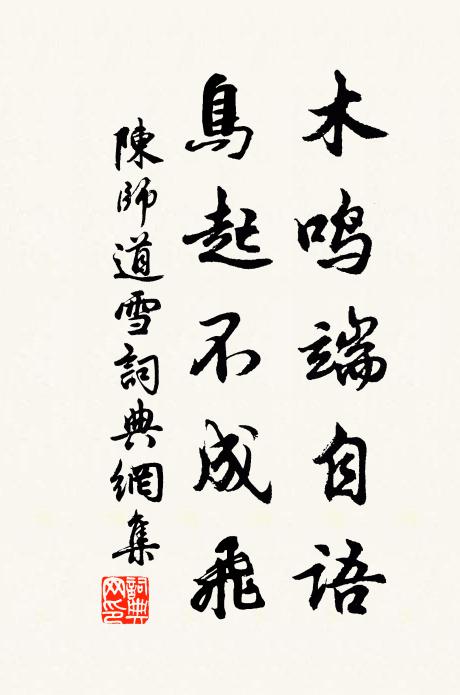 木鸣端自语
鳥起不成飛
陳師道雪詞典網集
詞典網印